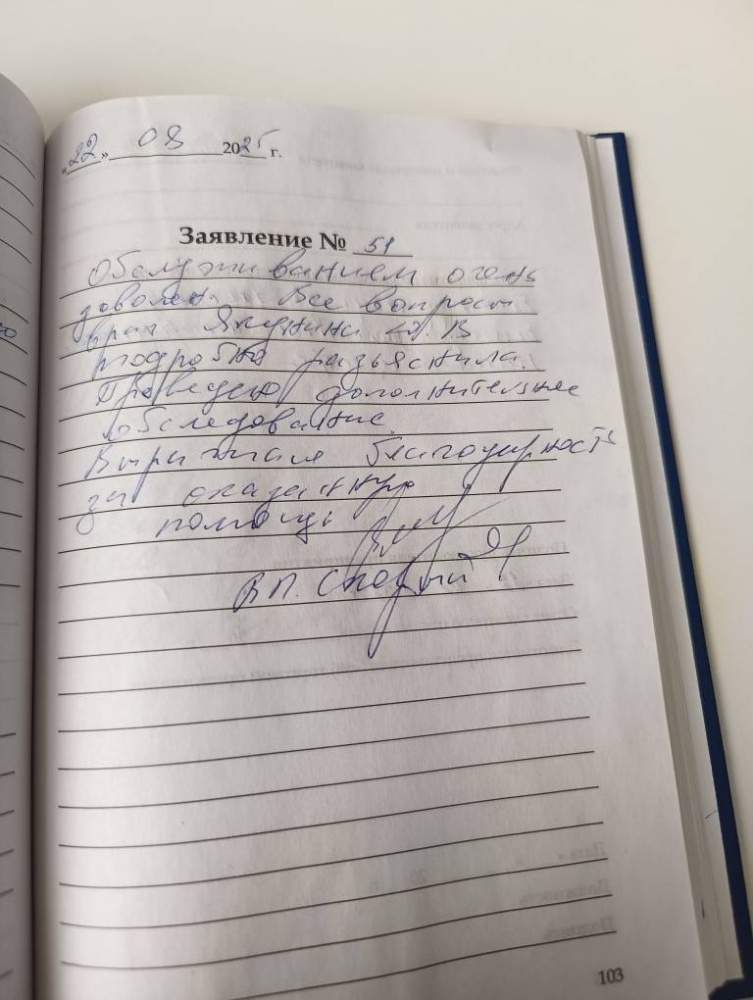 «22» 08 2025 г.
Заявление № 51
Обслуживанием очень
доволен. Все вопросы
врач
подробно разъяснила.
Проведено дополнительное
обследование
Выражаю благодарность
за оказанную
помощь
В.П.
103